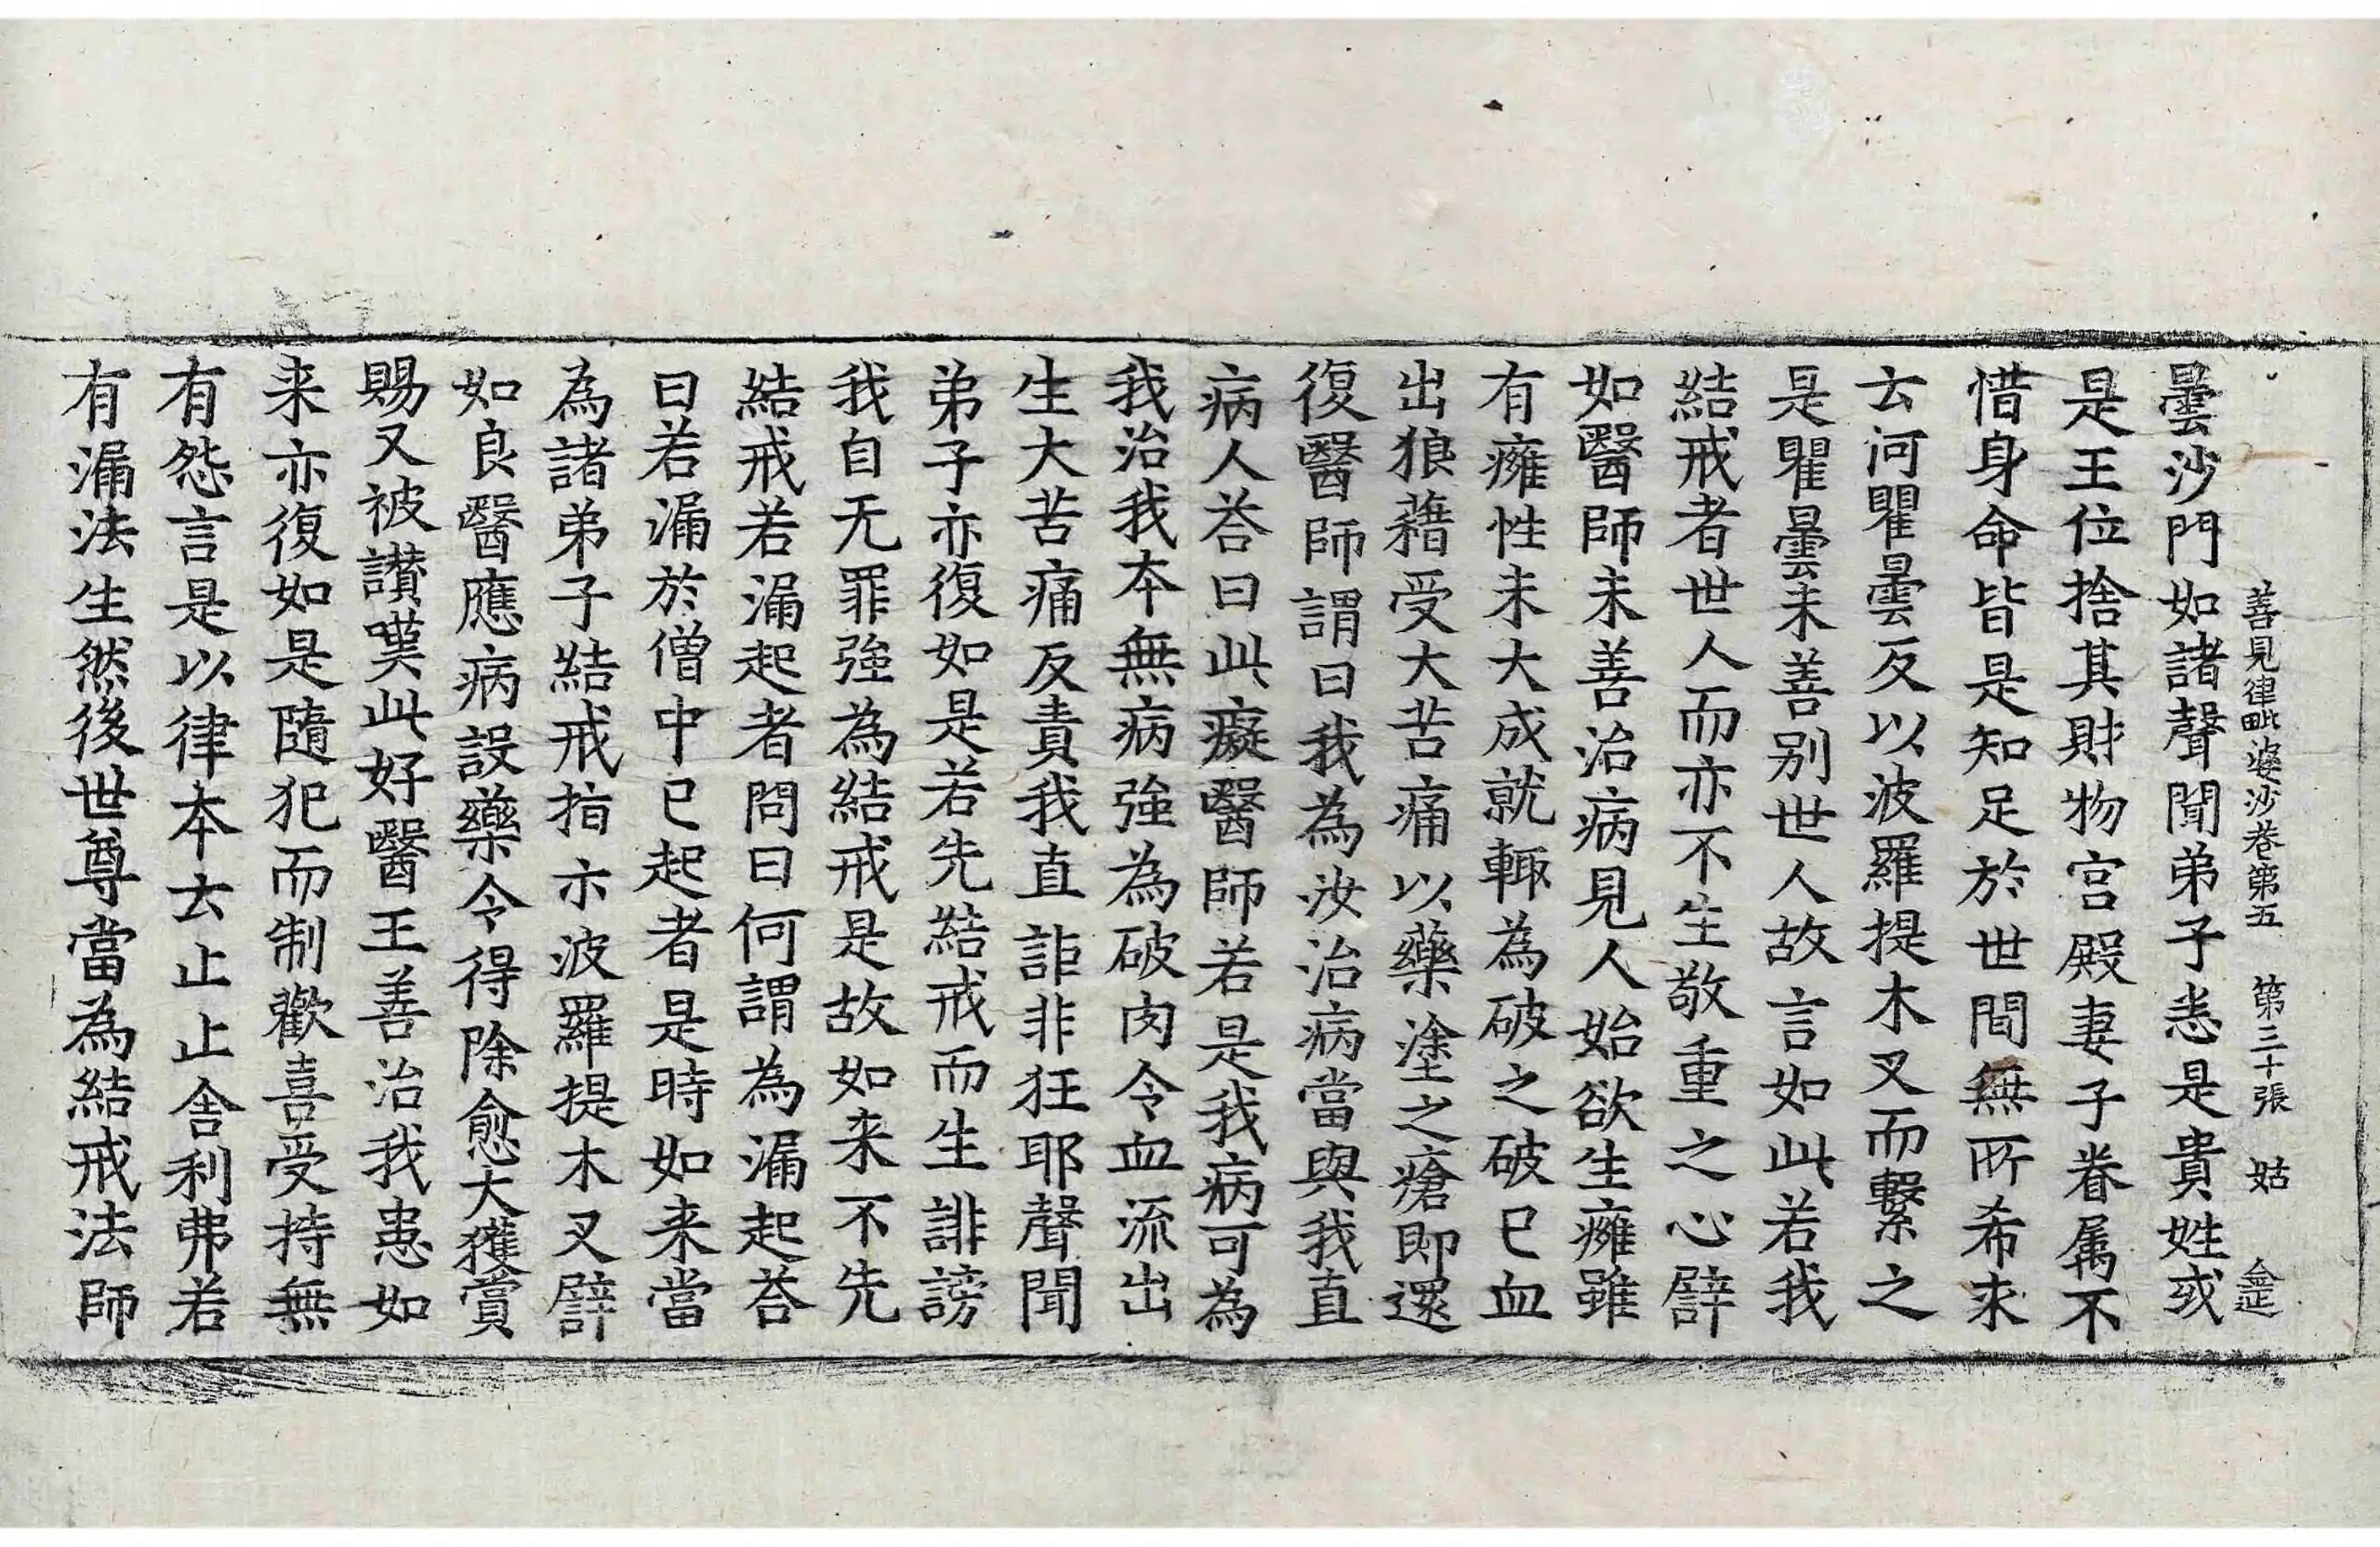 善見律毗婆沙卷第五 第三十張 姑
曇沙門如諸聲聞弟子悉是貴姓或
是王位捨其財物宫殿妻子眷属不
惜身命皆是知足於世間無所希求
云何瞿曇反以波羅提木叉而繫之
是瞿曇未善别世人故言如此若我
結戒者世人而亦不生敬重之心譬
如醫師未善治病見人始欲生癰雖
有癰性未大成就輙為破之破已血
出狼藉受大苦痛以藥塗之瘡即還
復醫師謂曰我為汝治病當與我直
病人荅曰此癡醫師若是我病可為
我治我本無病強為破肉令血流出
生大苦痛反責我直詎非狂耶聲聞
弟子亦復如是若先結戒而生誹謗
我自无罪強為結戒是故如来不先
結戒若漏起者問曰何謂為漏起荅
曰若漏於僧中已起者是時如来當
為諸弟子結戒指示波羅提木叉譬
如良醫應病設藥令得除愈大獲賞
賜又被讃嘆此好醫王善治我患如
来亦復如是隨犯而制歡喜受持無
有怨言是以律本云止止舍利弗若
有漏法生然後世尊當為結戒法師